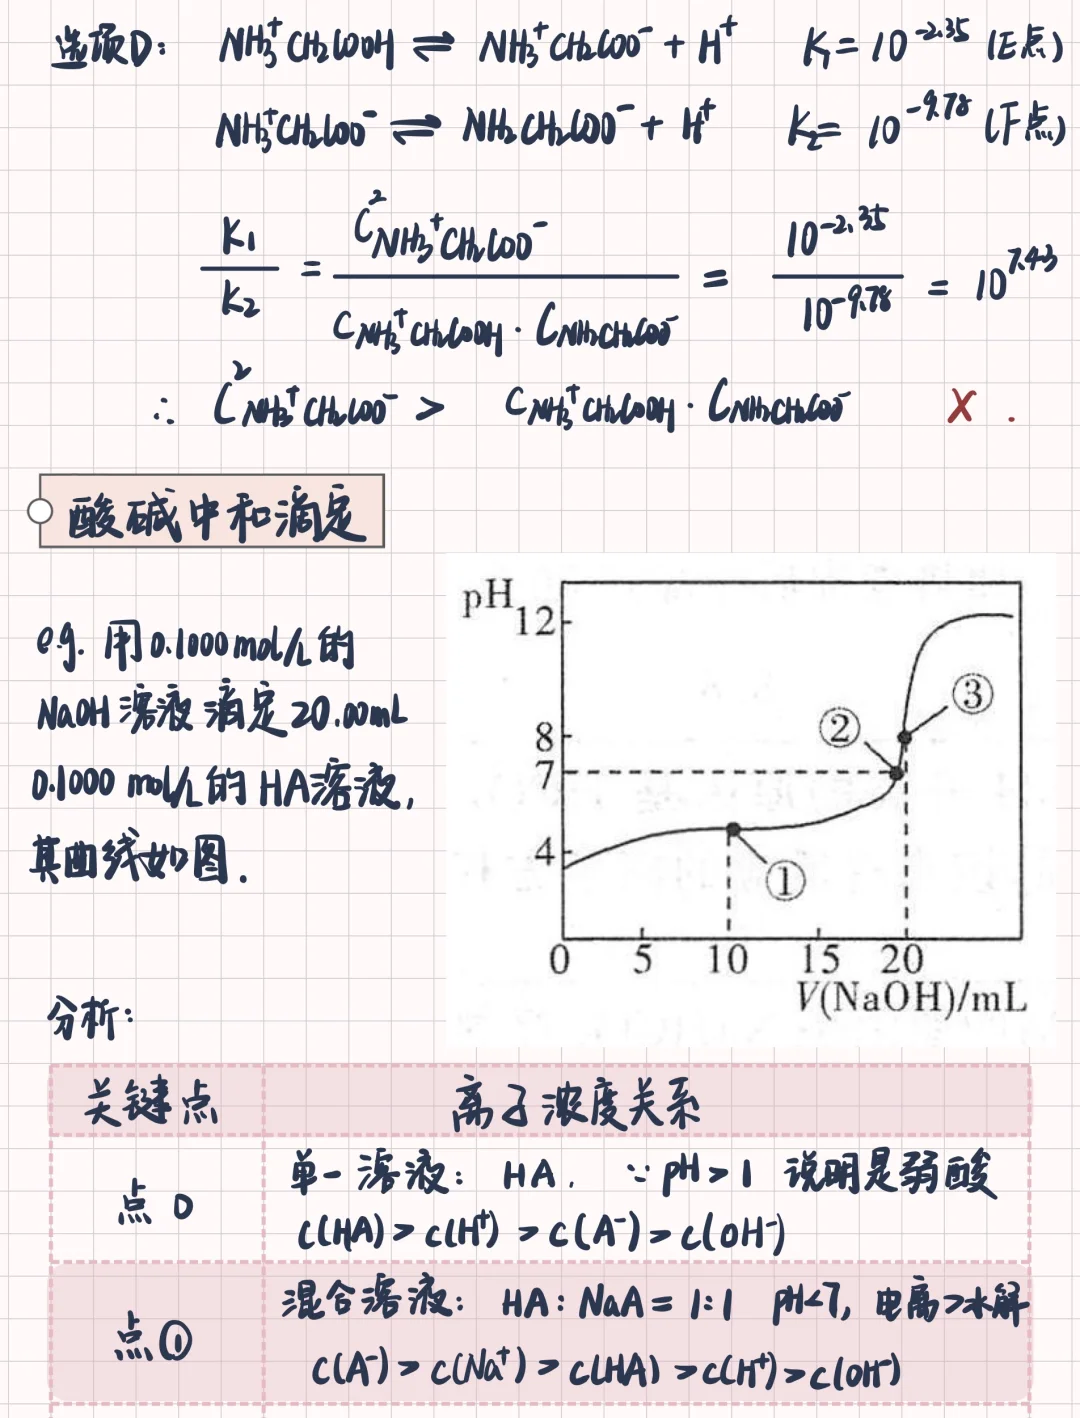 选项D: NH₃⁺CH₂COOH ⇌ NH₃⁺CH₂COO⁻ + H⁺ K₁= 10⁻²·³⁵ (E点)
NH₃⁺CH₂COO⁻ ⇌ NH₂CH₂COO⁻ + H⁺ K₂= 10⁻⁹·⁷⁸ (F点)
K₁/K₂ = C²NH₃⁺CH₂COO⁻ / CNH₃⁺CH₂COOH · CNH₂CH₂COO⁻ = 10⁻²·³⁵ / 10⁻⁹·⁷⁸ = 10⁷·⁴³
∴ C²NH₃⁺CH₂COO⁻ > CNH₃⁺CH₂COOH · CNH₂CH₂COO⁻ X .
酸碱中和滴定
e.g. 用0.1000mol/L的
NaOH溶液滴定20.00mL
0.1000mol/L的HA溶液,
其曲线如图.
pH
12
8
7
4
②
③
①
0 5 10 15 20
V(NaOH)/mL
分析:
关键点 离子浓度关系
点0
单一溶液: HA. ∵pH>1 说明是弱酸
c(HA)>c(H⁺)>c(A⁻)>c(OH⁻)
点①
混合溶液: HA:NaA=1:1 pH<7, 电离>水解
c(A⁻)>c(Na⁺)>c(HA)>c(H⁺)>c(OH⁻)